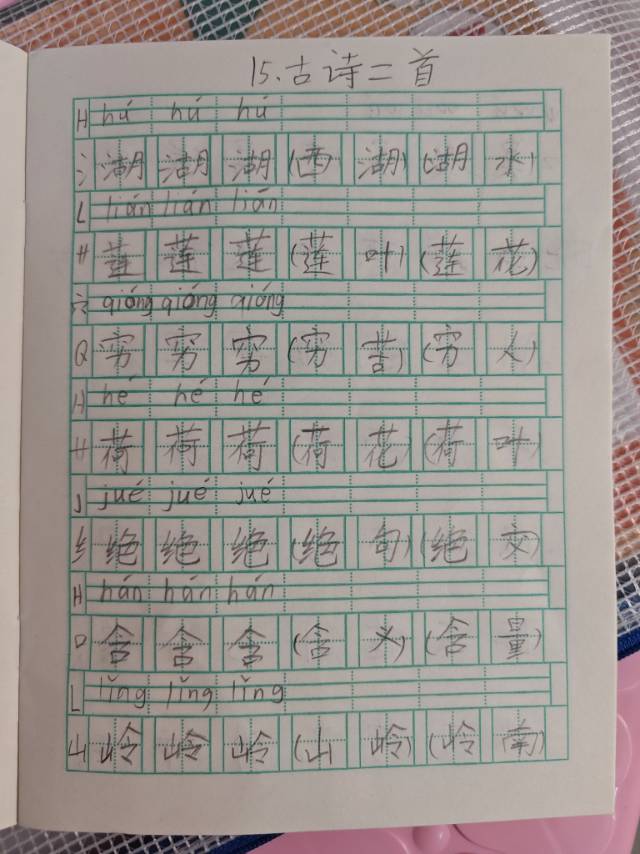 15.古诗二首
H hú hú hú
氵 湖 湖 湖 (西 湖) (湖 水)
L lián lián lián
艹 莲 莲 莲 (莲 叶) (莲 花)
穴 qióng qióng qióng
Q 穷 穷 穷 (穷 苦) (穷 人)
H hé hé hé
艹 荷 荷 荷 (荷 花) (荷 叶)
J jué jué jué
纟 绝 绝 绝 (绝 句) (绝 交)
H hán hán hán
口 含 含 含 (含 义) (含 量)
L lǐng lǐng lǐng
山 岭 岭 岭 (山 岭) (岭 南)